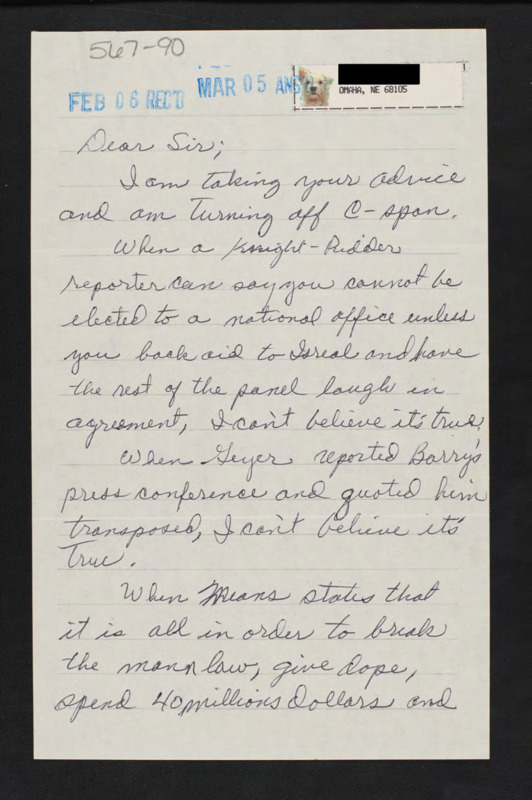 567-90
FEB 06 REC'D
MAR 05 ANS'D
OMAHA, NE 68105
Dear Sir;
I am taking your advice
and am turning off C-span.
When a Knight-Ridder
reporter can say you cannot be
elected to a national office unless
you back aid to Isreal and have
the rest of the panel laugh in
agreement, I can't believe it's true.
When Geyer reported Barry's
press conference and quoted him
transposed, I can't believe it's
true.
When Means states that
it is all in order to break
the mann law, give dope,
spend 40 millions dollars and